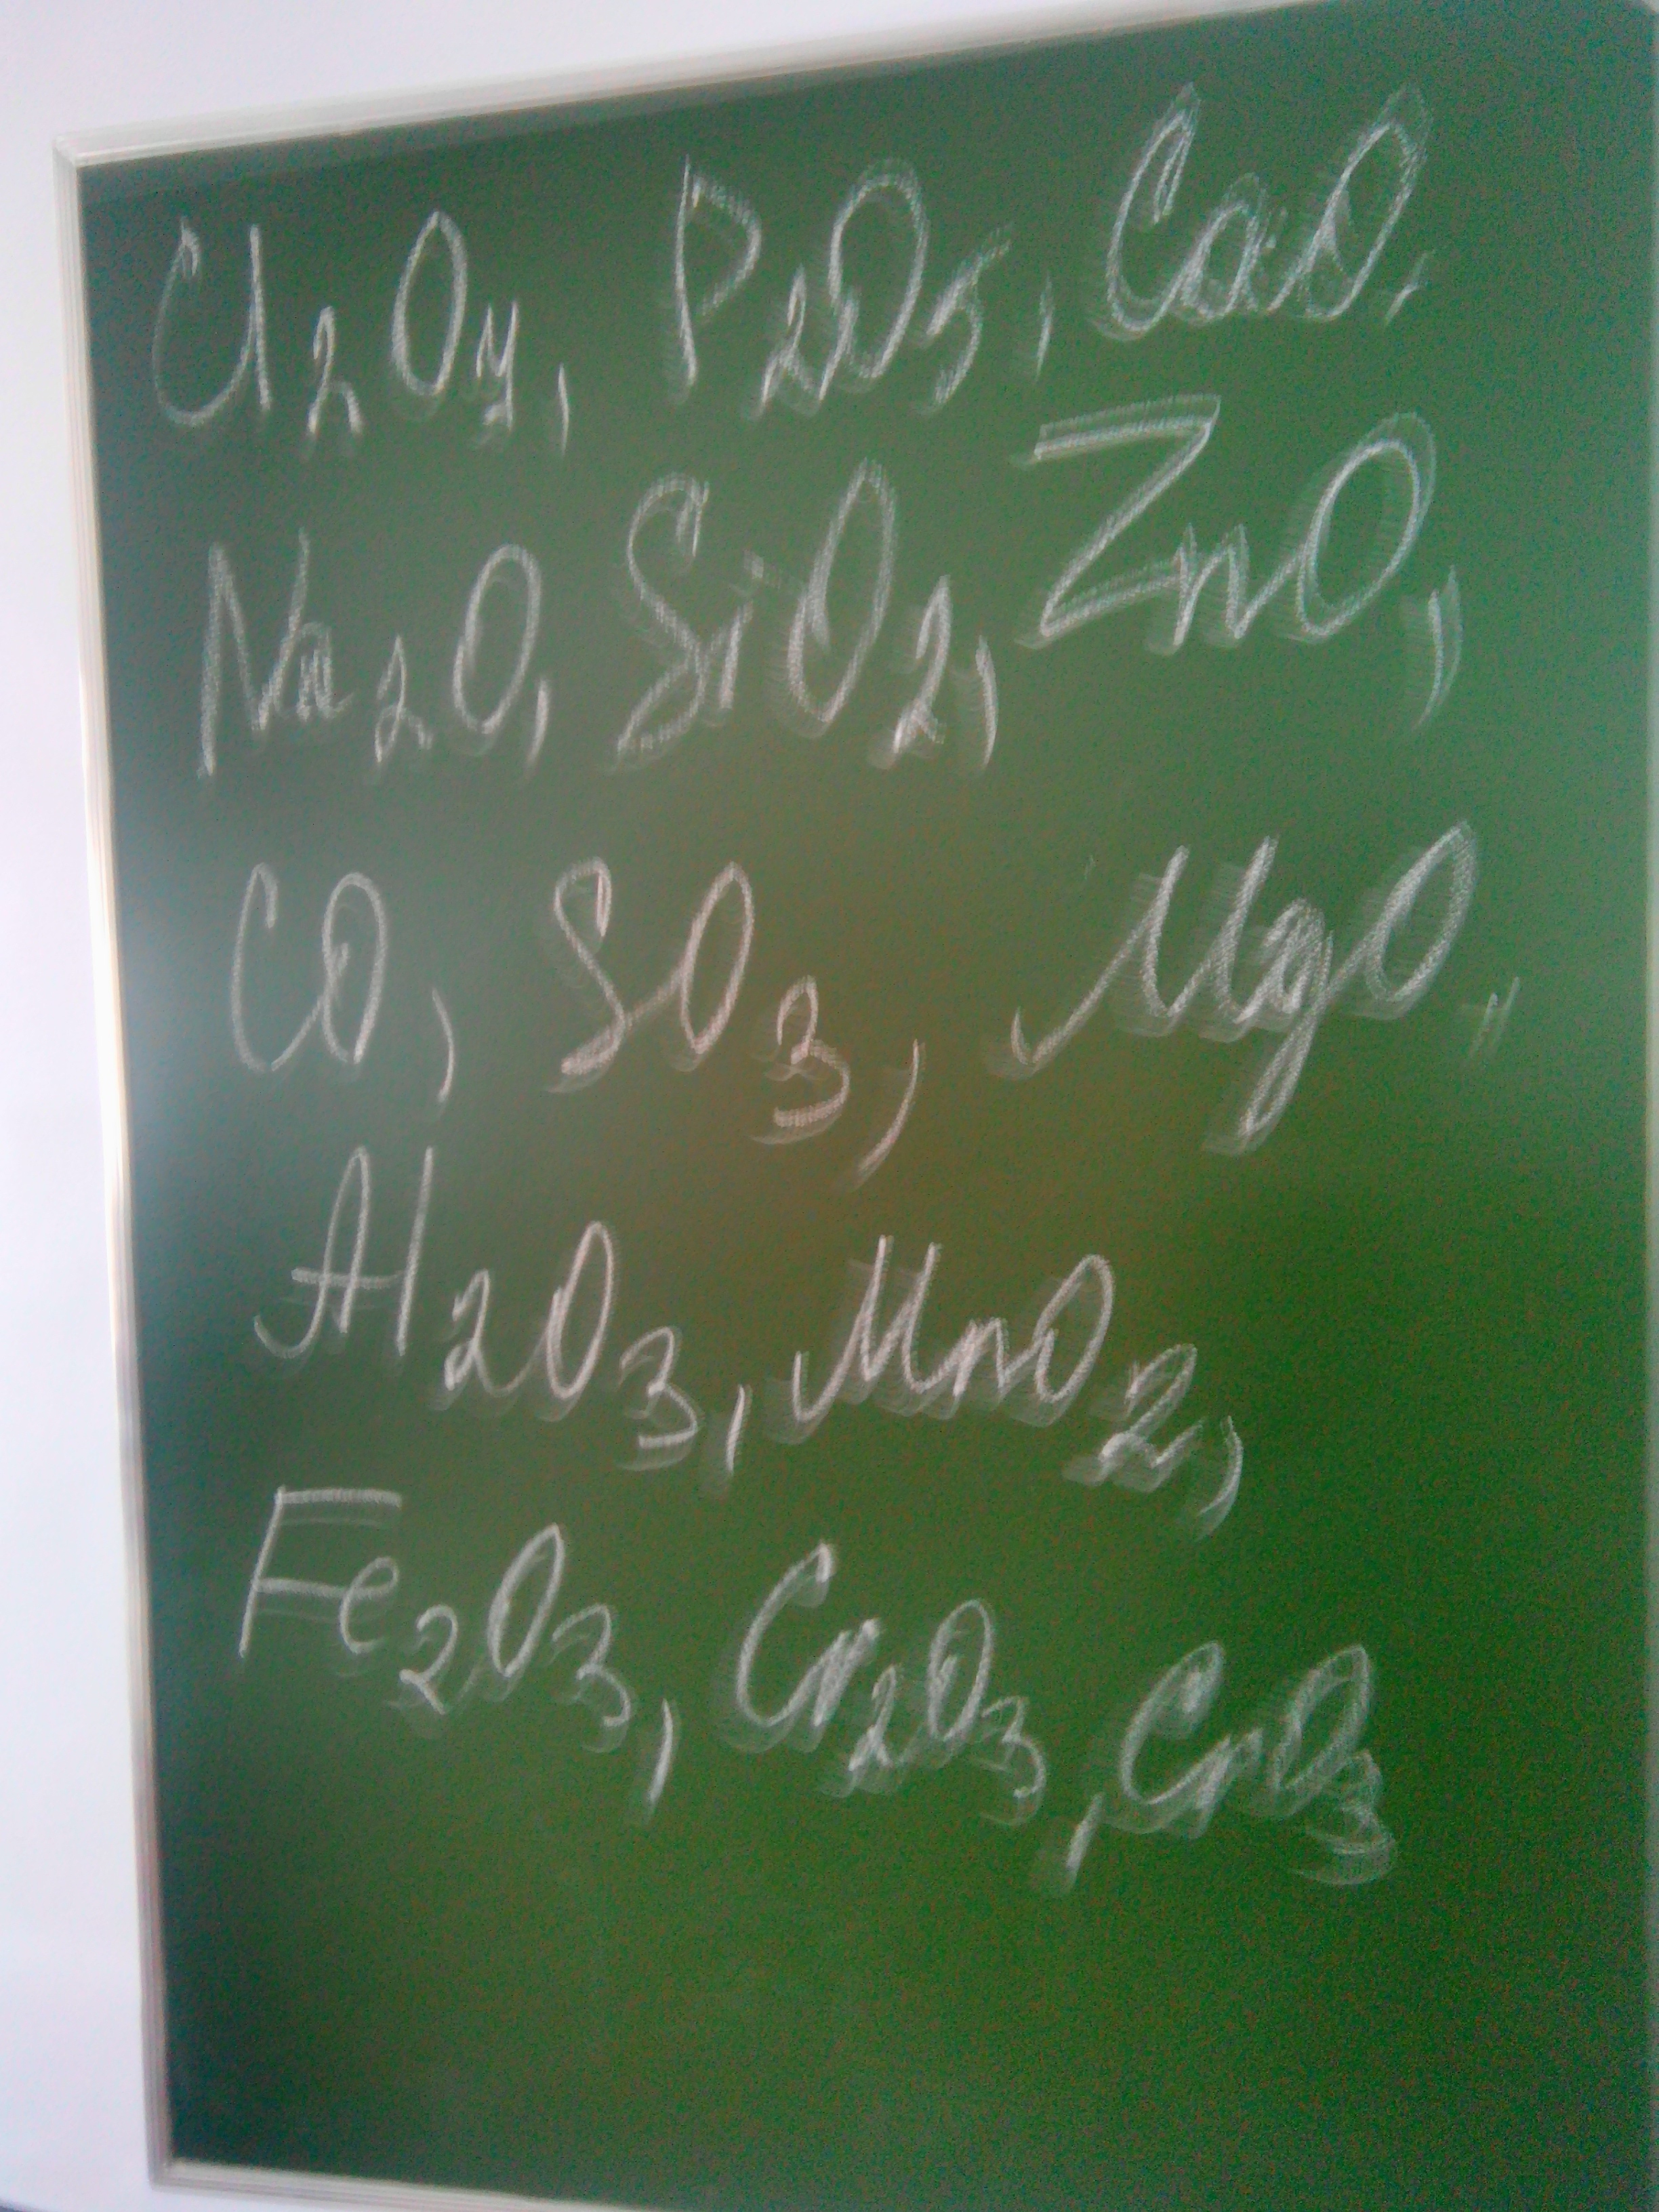 Cl₂O₇, P₂O₅, CaO,
Na₂O, SiO₂, ZnO,
CO, SO₃, MgO,
Al₂O₃, MnO₂,
Fe₂O₃, Cr₂O₃, CrO₃